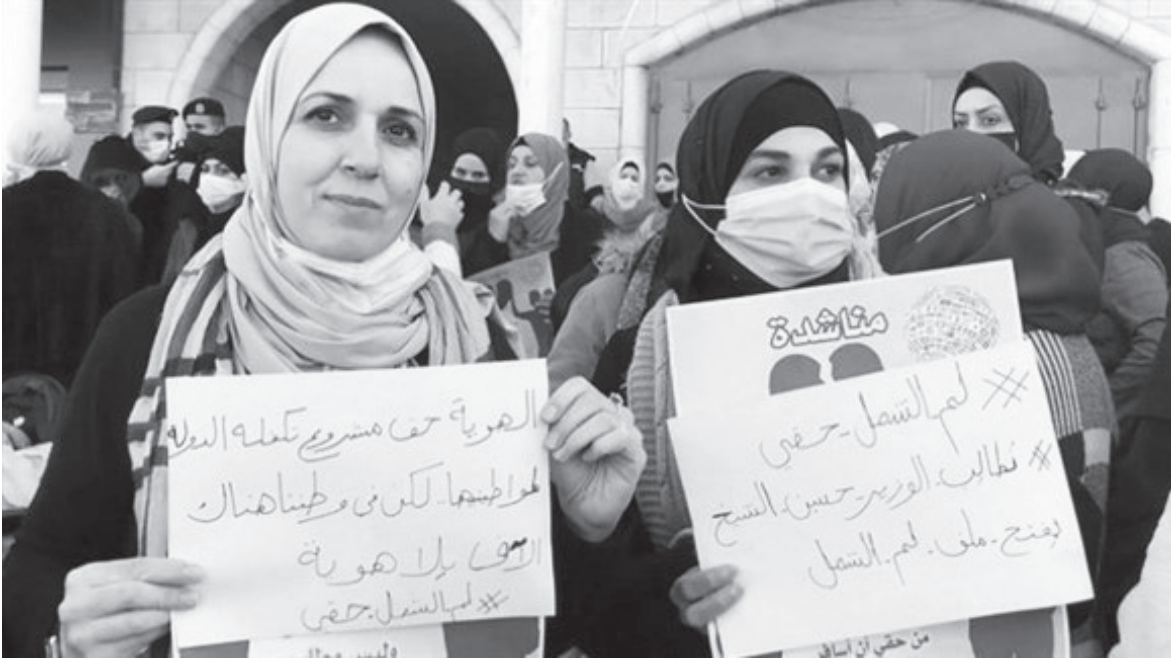 الهوية حق مشروع تكفله الدولة
لمواطنيها. لكن في وطننا هناك
بلا هوية
# لم الشمل_حقي
مناشدة
# لم_الشمل_حقي
# نطالب_الوزير_حسين_الشيخ
بفتح_ملف_لم_الشمل
من حقي أن أسافر